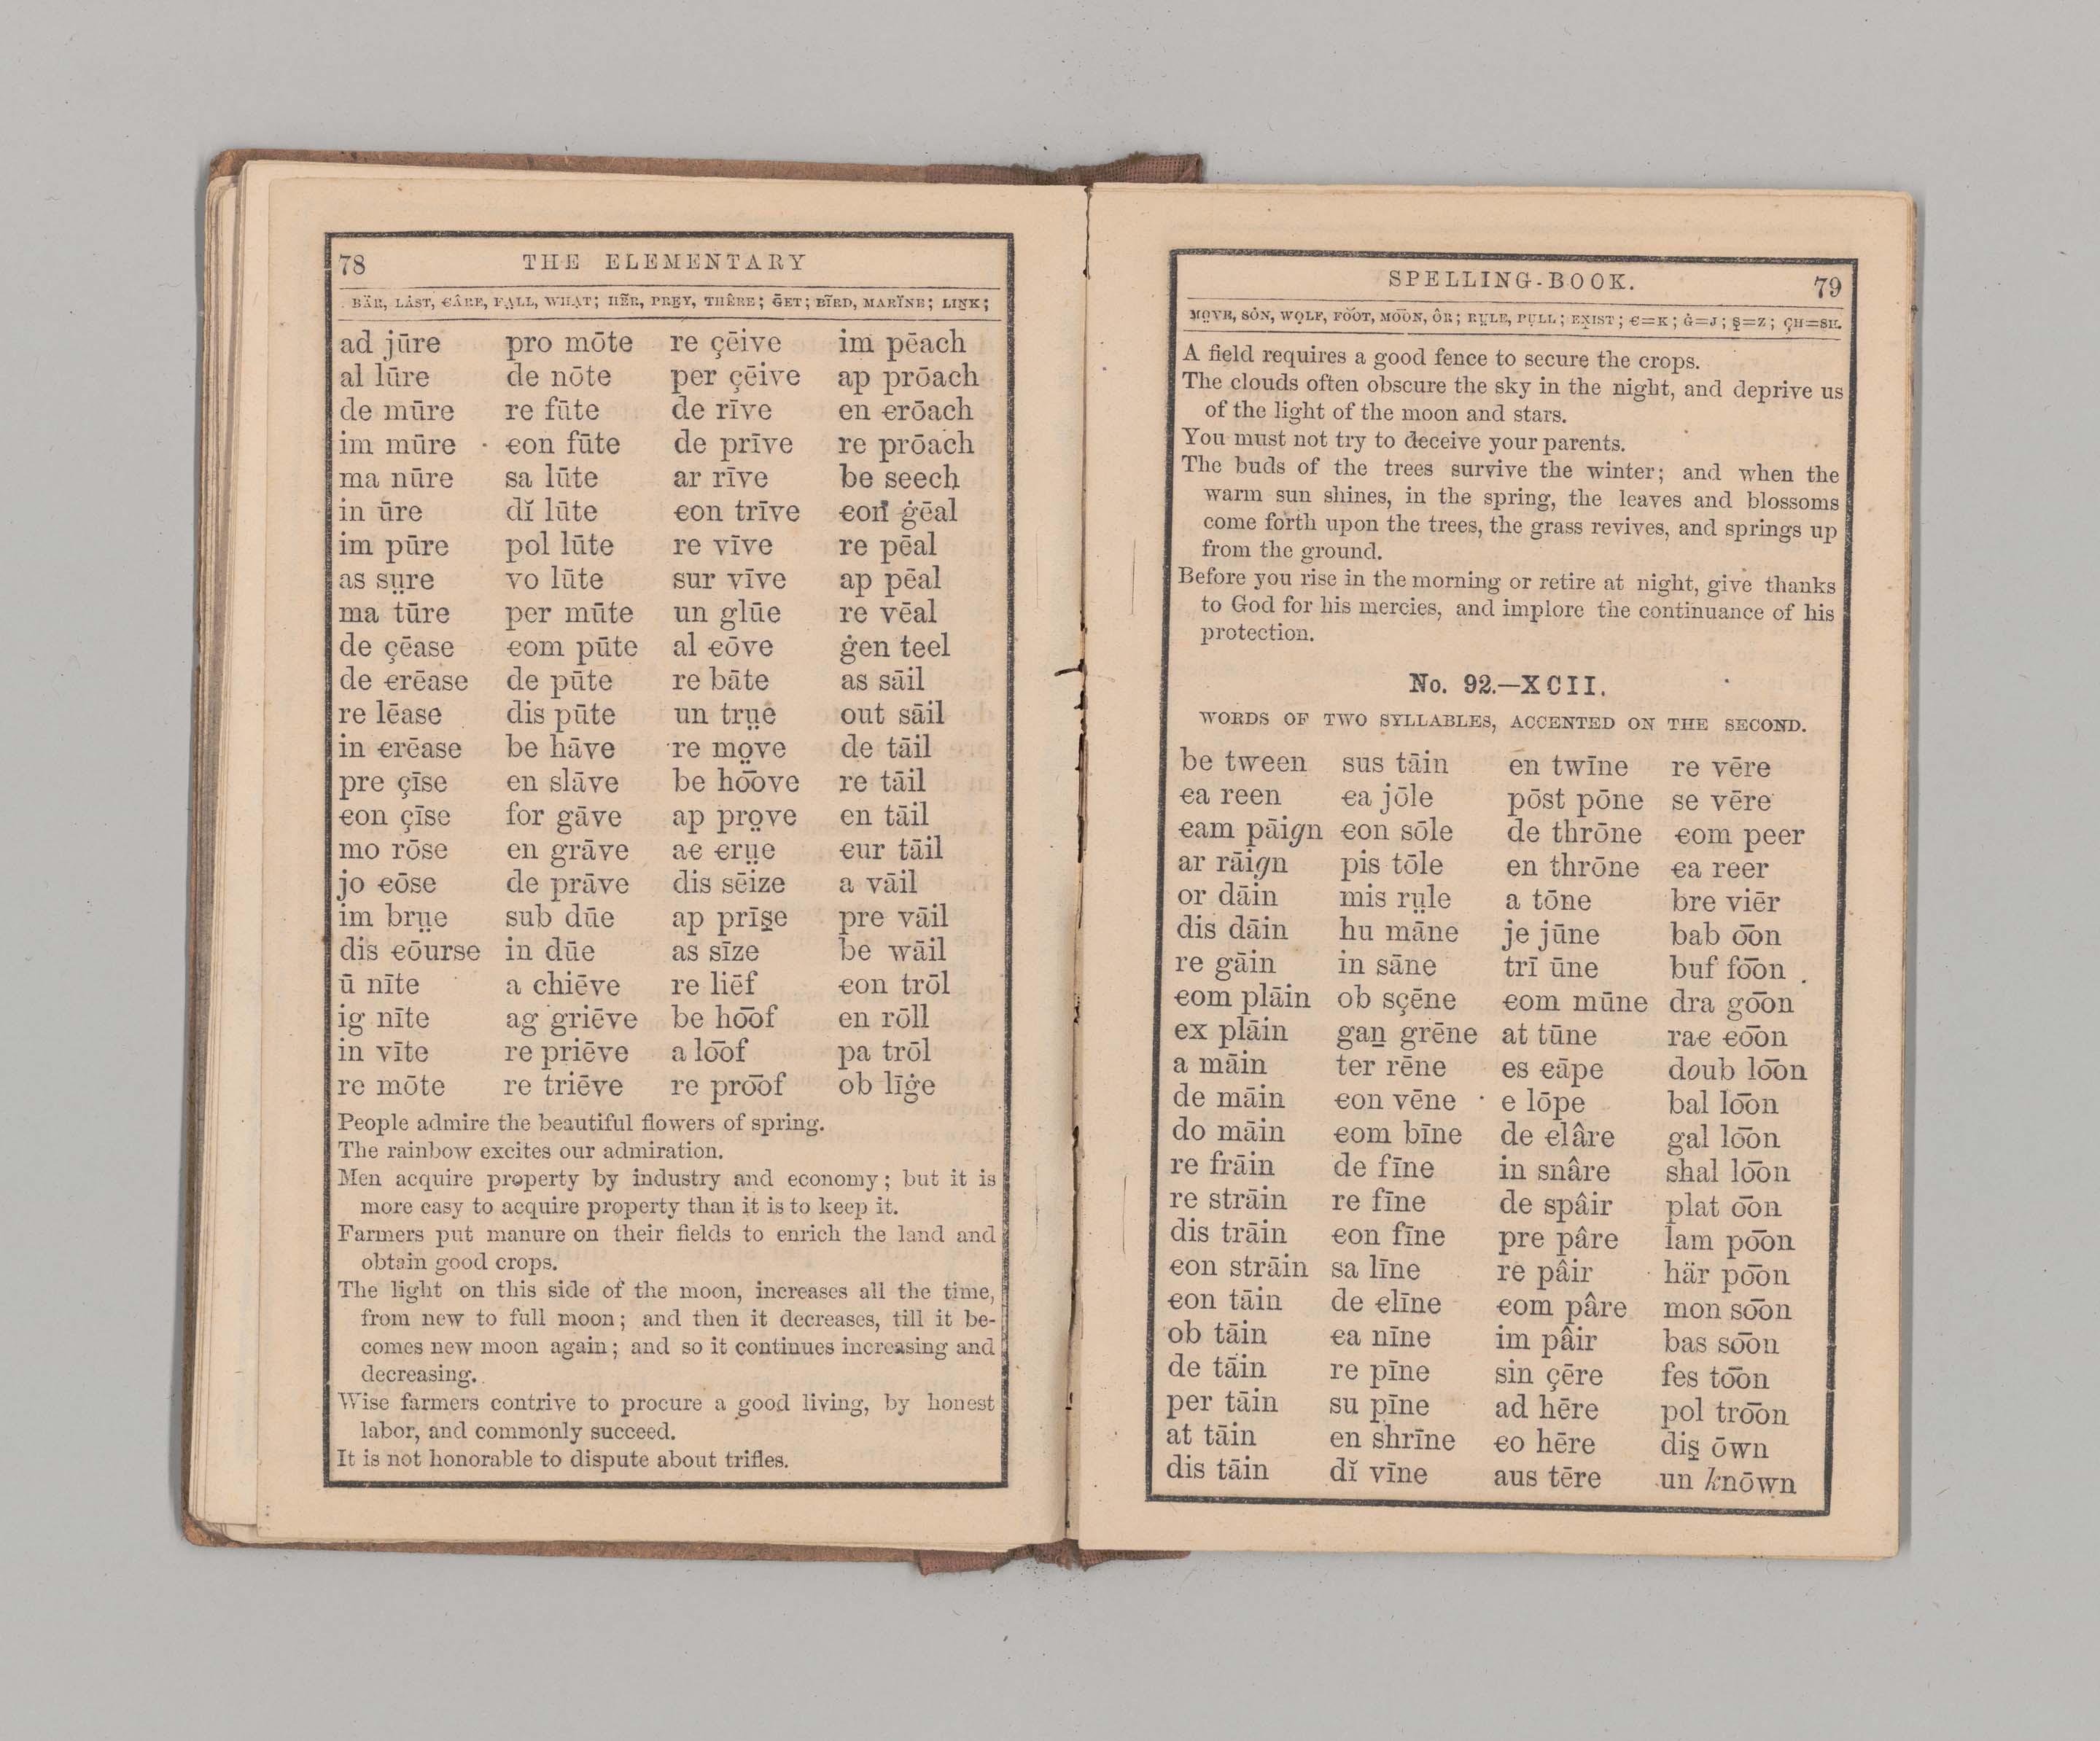 78 THE ELEMENTARY
BÄR, LÁST, ЄÂRE, FẠLL, WHẠT; HẼR, PREY, THÊRE; ḠET; BĪRD, MARÏNE; LIṈK;
ad jūre pro mōte re çēive im pēach
al lūre de nōte per çēive ap prōach
de mūre re fūte de rīve en єrōach
im mūre єon fūte de prīve re prōach
ma nūre sa lūte ar rīve be seech
in ūre dĭ lūte єon trīve єon ġēal
im pūre pol lūte re vīve re pēal
as sṳre vo lūte sur vīve ap pēal
ma tūre per mūte un glūe re vēal
de çēase єom pūte al єōve ġen teel
de єrēase de pūte re bāte as sāil
re lēase dis pūte un trṳe out sāil
in єrēase be hāve re mo̤ve de tāil
pre çīse en slāve be ho͞ove re tāil
єon çīse for gāve ap pro̤ve en tāil
mo rōse en grāve aє єrṳe єur tāil
jo єōse de prāve dis sēize a vāil
im brṳe sub dūe ap prīs̱e pre vāil
dis єōurse in dūe as sīze be wāil
ū nīte a chiēve re liēf єon trōl
ig nīte ag griēve be ho͞of en rōll
in vīte re priēve a lo͞of pa trōl
re mōte re triēve re pro͞of ob līġe
People admire the beautiful flowers of spring.
The rainbow excites our admiration.
Men acquire property by industry and economy; but it is
more easy to acquire property than it is to keep it.
Farmers put manure on their fields to enrich the land and
obtain good crops.
The light on this side of the moon, increases all the time,
from new to full moon; and then it decreases, till it be-
comes new moon again; and so it continues increasing and
decreasing.
Wise farmers contrive to procure a good living, by honest
labor, and commonly succeed.
It is not honorable to dispute about trifles.
SPELLING-BOOK. 79
MO̤VE, SÓN, WỌLF, FO͝OT, MO͞ON, ÔR; RṲLE, PỤLL; EX̱IST; Є=K; Ġ=J; S̱=Z; ÇH=SH.
A field requires a good fence to secure the crops.
The clouds often obscure the sky in the night, and deprive us
of the light of the moon and stars.
You must not try to deceive your parents.
The buds of the trees survive the winter; and when the
warm sun shines, in the spring, the leaves and blossoms
come forth upon the trees, the grass revives, and springs up
from the ground.
Before you rise in the morning or retire at night, give thanks
to God for his mercies, and implore the continuance of his
protection.
No. 92.—XCII.
WORDS OF TWO SYLLABLES, ACCENTED ON THE SECOND.
be tween sus tāin en twīne re vēre
єa reen єa jōle pōst pōne se vēre
єam pāign єon sōle de thrōne єom peer
ar rāign pis tōle en thrōne єa reer
or dāin mis rṳle a tōne bre viēr
dis dāin hu māne je jūne bab o͞on
re gāin in sāne trī ūne buf fo͞on
єom plāin ob sçēne єom mūne dra go͞on
ex plāin gaṉ grēne at tūne raє єo͞on
a māin ter rēne es єāpe doub lo͞on
de māin єon vēne e lōpe bal lo͞on
do māin єom bīne de єlâre gal lo͞on
re frāin de fīne in snâre shal lo͞on
re strāin re fīne de spâir plat o͞on
dis trāin єon fīne pre pâre lam po͞on
єon strāin sa līne re pâir här po͞on
єon tāin de єlīne єom pâre mon so͞on
ob tāin єa nīne im pâir bas so͞on
de tāin re pīne sin çēre fes to͞on
per tāin su pīne ad hēre pol tro͞on
at tāin en shrīne єo hēre dis̱ ōwn
dis tāin dĭ vīne aus tēre un knōwn